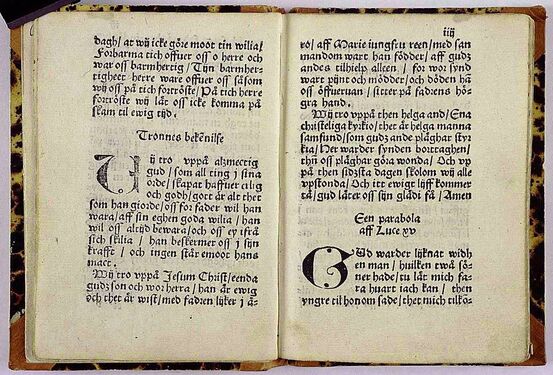 dagh / at wij icke göre moot tin wilia /
Forbarma tich offuer oss o herre och
war oss barmhertig / Tijn barmher-
tigheet herre ware offuer oss såsom
wij oss på tich förtröste / På tich herre
förtröste wij låt oss icke komma på
skam til ewig tijd.
Tronnes bekēnilse
Wij tro vppå alzmectig
gud / som all ting i sina
orde / skapat haffuer erlig
och godh / gott är alt thet
som han giorde / oss for fader wil han
wara / aff sin eghen goda wilia / han
wil oss altijd bewara / och oss ey ifrå
sich skilia / han beskermer oss i sijn
krafft / och ingen står emoot hans
mact.
Wij tro vppå Jesum Christ / eenda
gudz son och wor herra / han är ewig
och thet är wist / med fadren lijker i ä-
iiij
ro / aff Marie iungfru reen / med san
mandom wart han födder / aff gudz
andes tilhielp alleen / for wor synd
wart pijnt och mödder / och döden hā
oss öffueruan / sitter på fadrens hög-
gra hand.
Wij tro vppå then helga and / Ena
christeliga kyrkio / thet är helga manna
samfund / som gudz ande pläghar styr-
kia / Her warder synden borttaghen /
thn̄ oss pläghar göra wonda / Och vp
på then sidzsta dagen skolom wij alle
vpstonda / Och itt ewigt lijff kommer
tå / gud låter oss sijn glädi få / Amen
Een parabola
aff Luce xv
GUd warder lijknat widh
en man / huilken twå sö-
ner hade / tu låt mich fa-
ra huart iach kan / then
yngre til honom sade / thet mich tilkö-